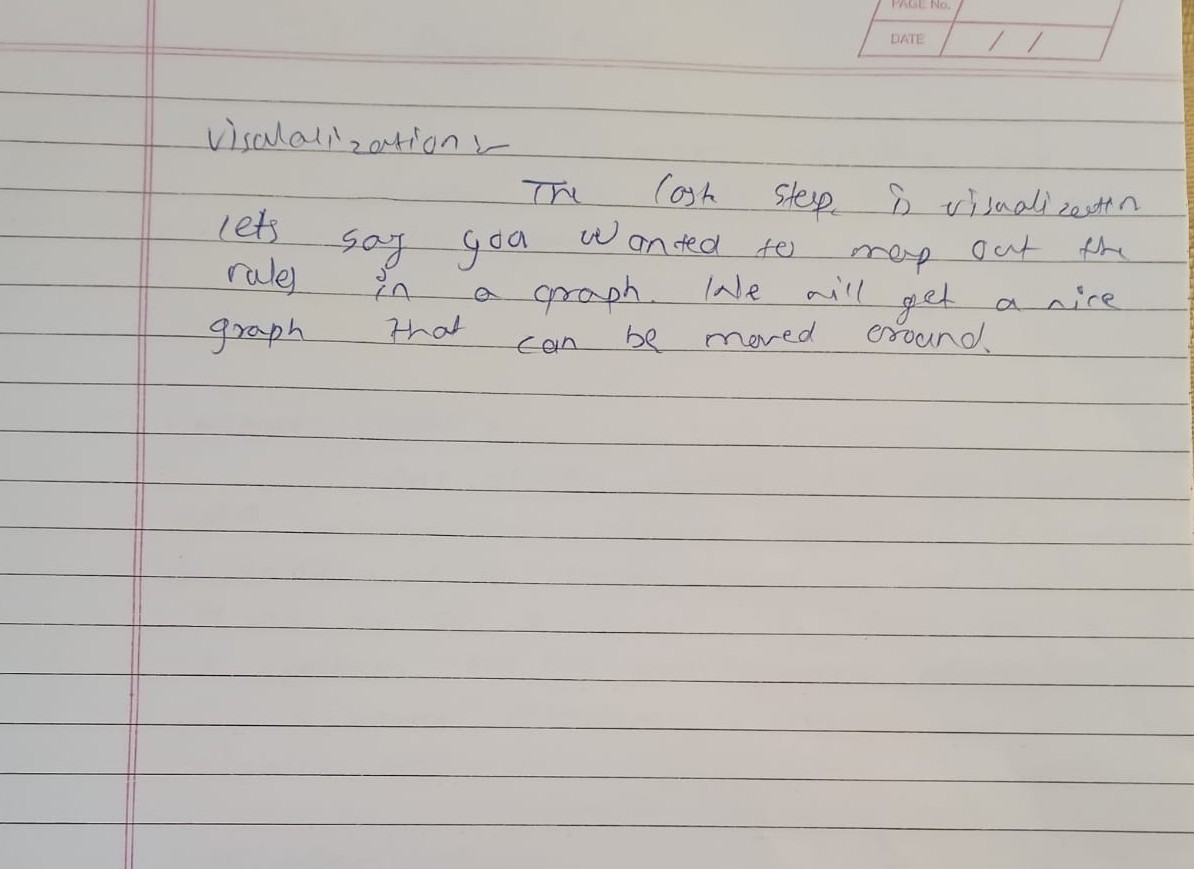 PAGE No.
DATE / /
Visualization :-
The last step is visualization
lets say you wanted to map out the
rules in a graph. We will get a nice
graph that can be moved around.